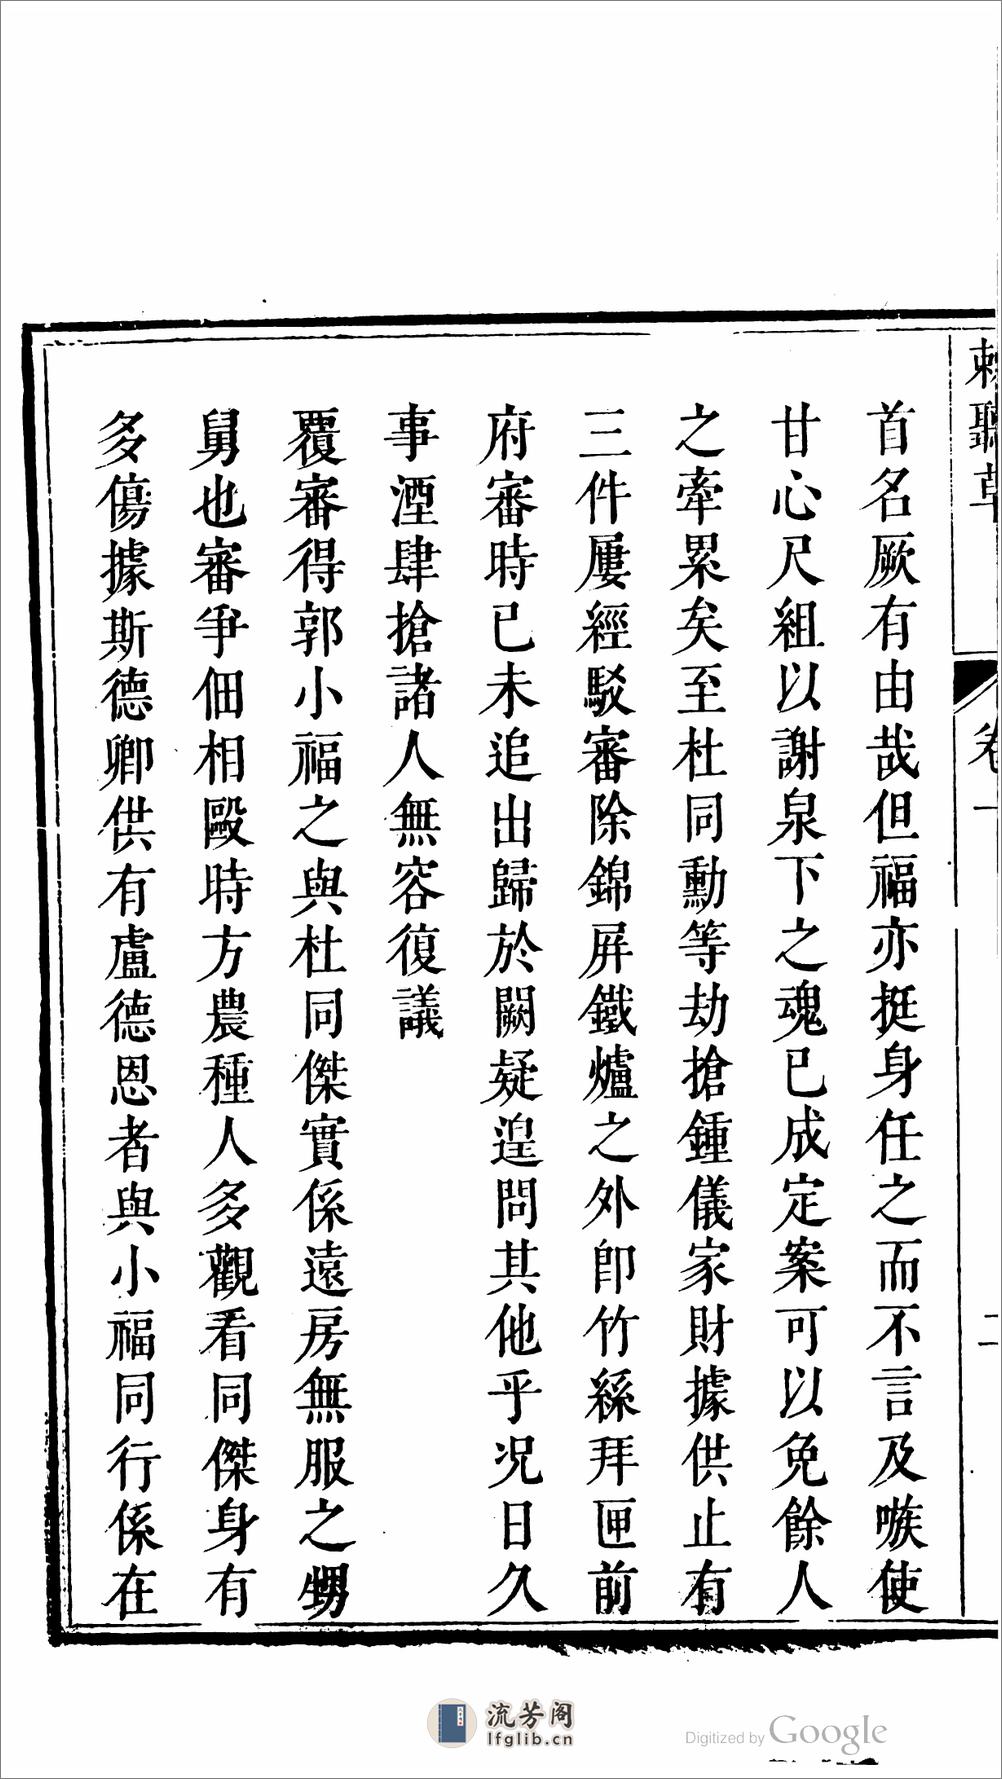 棘聽草 卷一 二
首名厥有由哉但福亦挺身任之而不言及嗾使
甘心尺組以謝泉下之魂已成定案可以免餘人
之牽累矣至杜同勳等劫搶鍾儀家財據供止有
三件屢經駁審除錦屏鐵爐之外卽竹絲拜匣前
府審時已未追出歸於闕疑遑問其他乎况日久
事湮肆搶諸人無容復議
覆審得郭小福之與杜同傑實係遠房無服之甥
舅也審爭佃相毆時方農種人多觀看同傑身有
多傷據斯德卿供有盧德恩者與小福同行係在
流芳阁
lfglib.cn
Digitized by Google